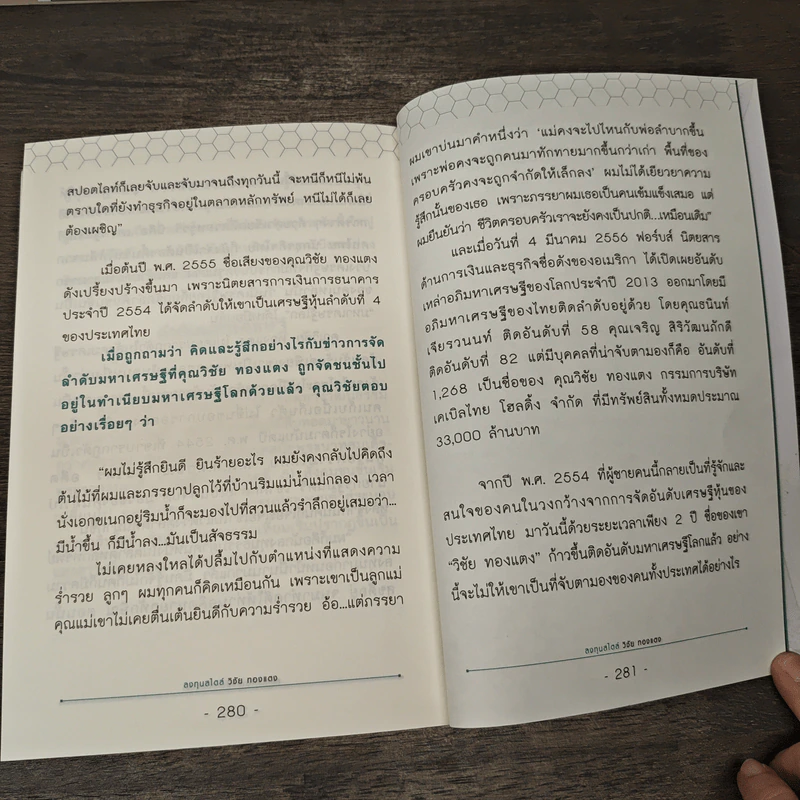 สปอตไลท์ก็เลยจับและจับมาจนถึงทุกวันนี้ จะหนีก็หนีไม่พ้น
ตราบใดที่ยังทำธุรกิจอยู่ในตลาดหลักทรัพย์ หนีไม่ได้ก็เลย
ต้องเผชิญ”
เมื่อต้นปี พ.ศ. 2555 ชื่อเสียงของคุณวิชัย ทองแตง
ดังเปรี้ยงปร้างขึ้นมา เพราะนิตยสารการเงินการธนาคาร
ประจำปี 2554 ได้จัดลำดับให้เขาเป็นเศรษฐีหุ้นลำดับที่ 4
ของประเทศไทย
เมื่อถูกถามว่า คิดและรู้สึกอย่างไรกับข่าวการจัด
ลำดับมหาเศรษฐีที่คุณวิชัย ทองแตง ถูกจัดชนชั้นไป
อยู่ในทำเนียบมหาเศรษฐีโลกด้วยแล้ว คุณวิชัยตอบ
อย่างเรื่อยๆ ว่า
“ผมไม่รู้สึกยินดี ยินร้ายอะไร ผมยังคงกลับไปคิดถึง
ต้นไม้ที่ผมและภรรยาปลูกไว้ที่บ้านริมแม่น้ำแม่กลอง เวลา
นั่งเอกเขนกอยู่ริมน้ำก็จะมองไปที่สวนแล้วรำลึกอยู่เสมอว่า...
มีน้ำขึ้น ก็มีน้ำลง...มันเป็นสัจธรรม
ไม่เคยหลงใหลได้ปลื้มไปกับตำแหน่งที่แสดงความ
ร่ำรวย ลูกๆ ผมทุกคนก็คิดเหมือนกัน เพราะเขาเป็นลูกแม่
คุณแม่เขาไม่เคยตื่นเต้นยินดีกับความร่ำรวย อ้อ...แต่ภรรยา
ลงทุนสไตล์ วิชัย ทองแตง
- 280 -
ผมเขาบ่นมาคำหนึ่งว่า ‘แม่คงจะไปไหนกับพ่อลำบากขึ้น
เพราะพ่อคงจะถูกคนมาทักทายมากขึ้นกว่าเก่า พื้นที่ของ
ครอบครัวคงจะถูกจำกัดให้เล็กลง’ ผมไม่ได้เยียวยาความ
รู้สึกนั้นของเธอ เพราะภรรยาผมเธอเป็นคนเข้มแข็งเสมอ แต่
ผมยืนยันว่า ชีวิตครอบครัวเราจะยังคงเป็นปกติ...เหมือนเดิม”
และเมื่อวันที่ 4 มีนาคม 2556 ฟอร์บส์ นิตยสาร
ด้านการเงินและธุรกิจชื่อดังของอเมริกา ได้เปิดเผยอันดับ
เหล่าอภิมหาเศรษฐีของโลกประจำปี 2013 ออกมาโดยมี
อภิมหาเศรษฐีของไทยติดลำดับอยู่ด้วย โดยคุณธนินท์
เจียรวนนท์ ติดอันดับที่ 58 คุณเจริญ สิริวัฒนภักดี
ติดอันดับที่ 82 แต่มีบุคคลที่น่าจับตามองก็คือ อันดับที่
1,268 เป็นชื่อของ คุณวิชัย ทองแตง กรรมการบริษัท
เคเบิลไทย โฮลดิ้ง จำกัด ที่มีทรัพย์สินทั้งหมดประมาณ
33,000 ล้านบาท
จากปี พ.ศ. 2554 ที่ผู้ชายคนนี้กลายเป็นที่รู้จักและ
สนใจของคนในวงกว้างจากการจัดอันดับเศรษฐีหุ้นของ
ประเทศไทย มาวันนี้ด้วยระยะเวลาเพียง 2 ปี ชื่อของเขา
“วิชัย ทองแตง” ก้าวขึ้นติดอันดับมหาเศรษฐีโลกแล้ว อย่าง
นี้จะไม่ให้เขาเป็นที่จับตามองของคนทั้งประเทศได้อย่างไร
ลงทุนสไตล์ วิชัย ทองแตง
- 281 -